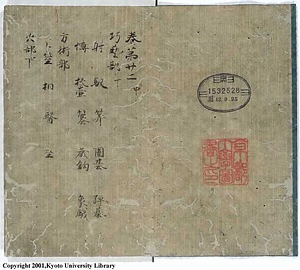 卷第廿二
巧藝部下
射 馭 算 圍碁 彈碁
博 投壺 簺 藏鈎 象戯
方術部
卜筮 相 醫 巫
火部下
1532528
Copyright 2001,Kyoto University Library